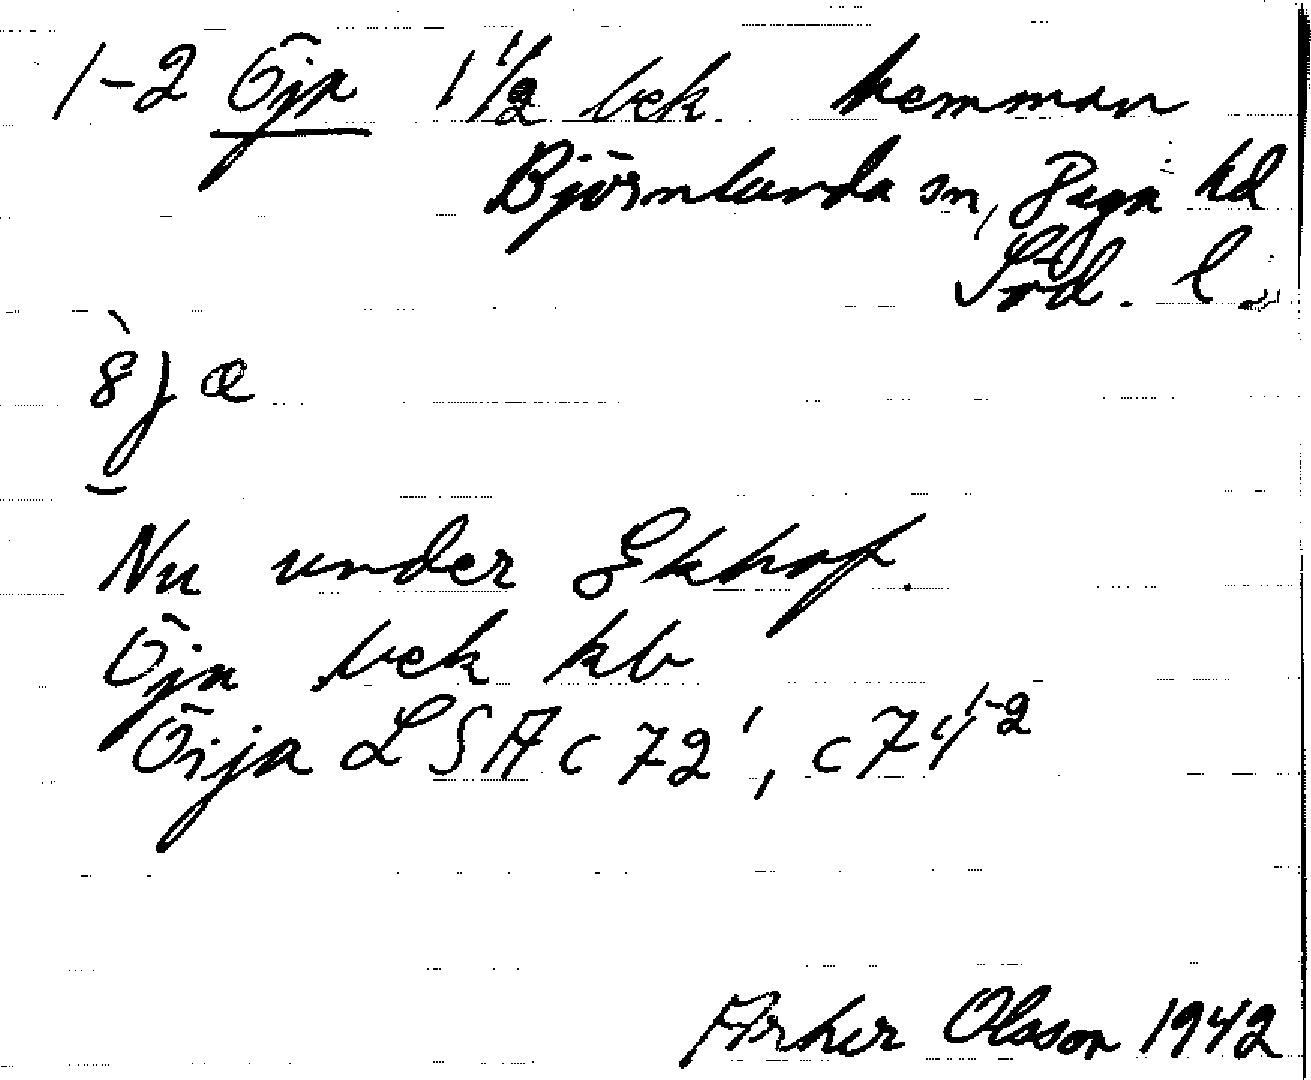 1-2 Öja 1 1/2 bek. hemman
Björnlunda sn, Daga hd
Söd. l.
8jæ
Nu under Ekhof.
Öja bek kb
Öija LSA c 72¹, c 74¹⁻²
Olsson 1942